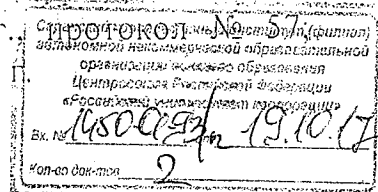 протокол № 57
(филиал)
автономной некоммерческой образовательной
организации высшего образования
Центросоюза Российской Федерации
«Российский университет кооперации»
Вх. № 19.10.17
Кол-во док-тов 2